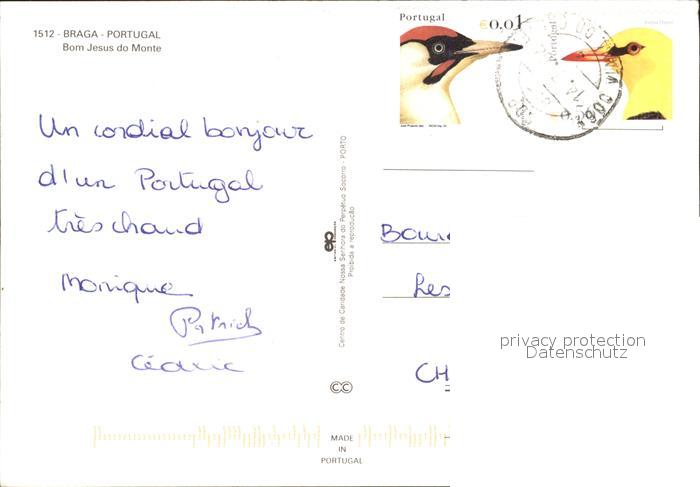 1512 - BRAGA - PORTUGAL
Bom Jesus do Monte
Portugal
€0,01
Un cordial bonjour
d'un Portugal
très chaud
Monique
Patrick
Cédric
Centro de Caridade Nossa Senhora do Perpétuo Socorro - PORTO
Proibida a reprodução
ep
Les
CH
privacy protection
Datenschutz
MADE
IN
PORTUGAL